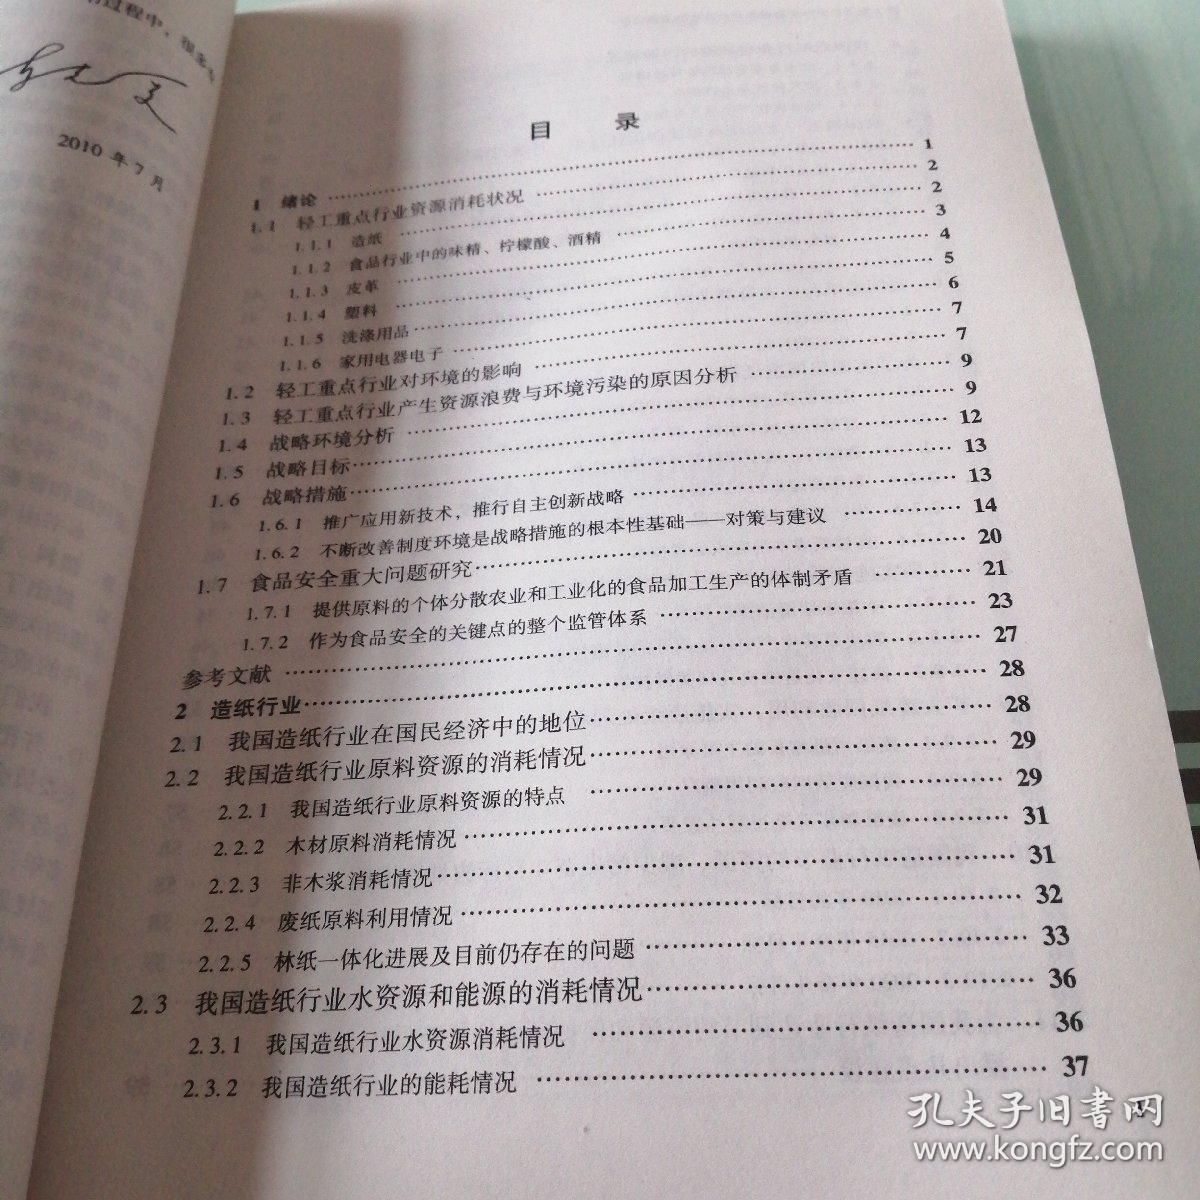 过程中，很多
2010年7月
目 录
1 绪论 …… 1
1.1 轻工重点行业资源消耗状况 …… 2
1.1.1 造纸 …… 2
1.1.2 食品行业中的味精、柠檬酸、酒精 …… 3
1.1.3 皮革 …… 4
1.1.4 塑料 …… 5
1.1.5 洗涤用品 …… 6
1.1.6 家用电器电子 …… 7
1.2 轻工重点行业对环境的影响 …… 7
1.3 轻工重点行业产生资源浪费与环境污染的原因分析 …… 9
1.4 战略环境分析 …… 9
1.5 战略目标 …… 12
1.6 战略措施 …… 13
1.6.1 推广应用新技术，推行自主创新战略 …… 13
1.6.2 不断改善制度环境是战略措施的根本性基础——对策与建议 …… 14
1.7 食品安全重大问题研究 …… 20
1.7.1 提供原料的个体分散农业和工业化的食品加工生产的体制矛盾 …… 21
1.7.2 作为食品安全的关键点的整个监管体系 …… 23
参考文献 …… 27
2 造纸行业 …… 28
2.1 我国造纸行业在国民经济中的地位 …… 28
2.2 我国造纸行业原料资源的消耗情况 …… 29
2.2.1 我国造纸行业原料资源的特点 …… 29
2.2.2 木材原料消耗情况 …… 31
2.2.3 非木浆消耗情况 …… 31
2.2.4 废纸原料利用情况 …… 32
2.2.5 林纸一体化进展及目前仍存在的问题 …… 33
2.3 我国造纸行业水资源和能源的消耗情况 …… 36
2.3.1 我国造纸行业水资源消耗情况 …… 36
2.3.2 我国造纸行业的能耗情况 …… 37
孔夫子旧书网
www.kongfz.com